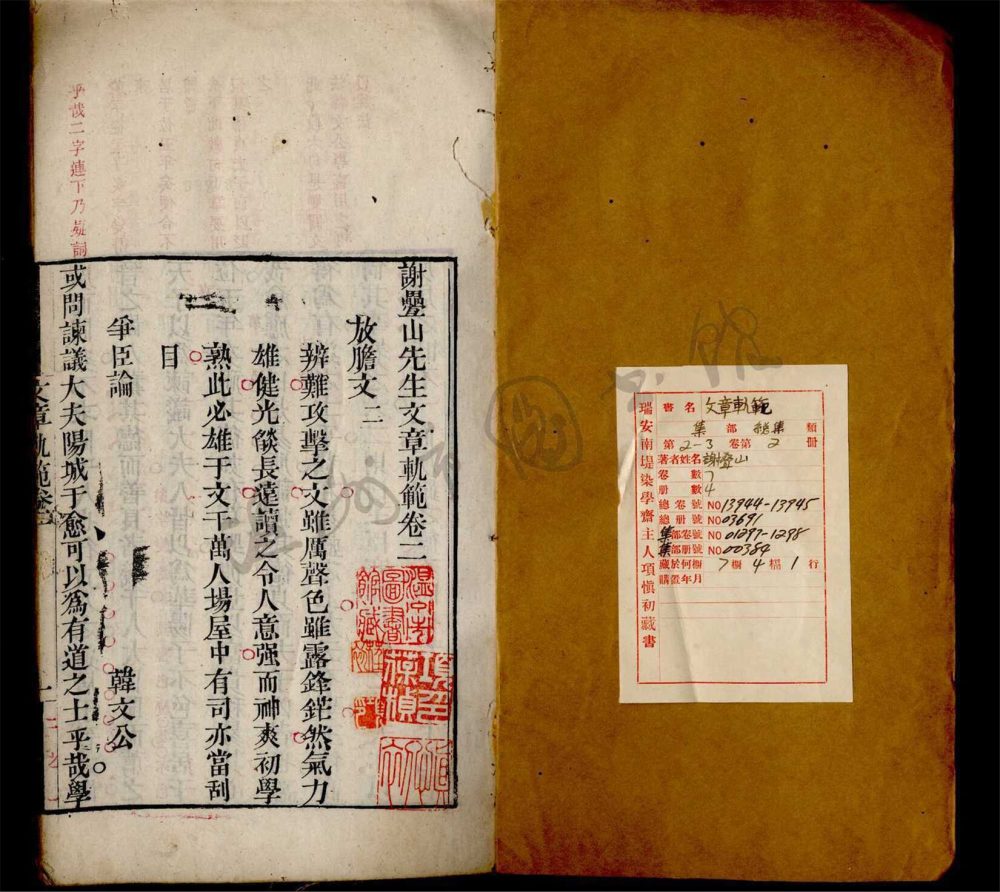 瑞安南堤染學齋主人項慎初藏書
書名 文章軌範
集部 總集類
第2-3卷第2冊
著者姓名 謝疊山
卷數 7
册數 4
總卷號 NO 13944-13945
總册號 NO 03691
集部卷號 NO 01297-1298
集部册號 NO 00384
藏於何櫥 7櫥4檔1行
購置年月
謝疊山先生文章軌範卷二
放膽文 二
辨難攻擊之文雖厲聲色雖露鋒鋩然氣力
雄健光燄長遠讀之令人意强而神爽初學
熟此必雄于文千萬人場屋中有司亦當刮
目
爭臣論 韓文公
或問諫議大夫陽城于愈可以爲有道之士乎哉學
乎哉二字連下乃疑詞
文章軌範卷二
温州市圖書館藏